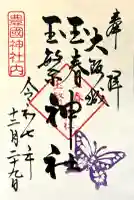 奉拝
大阪城
玉春
玉繁
神社
豊國神社内
令和七年
十二月二十九日